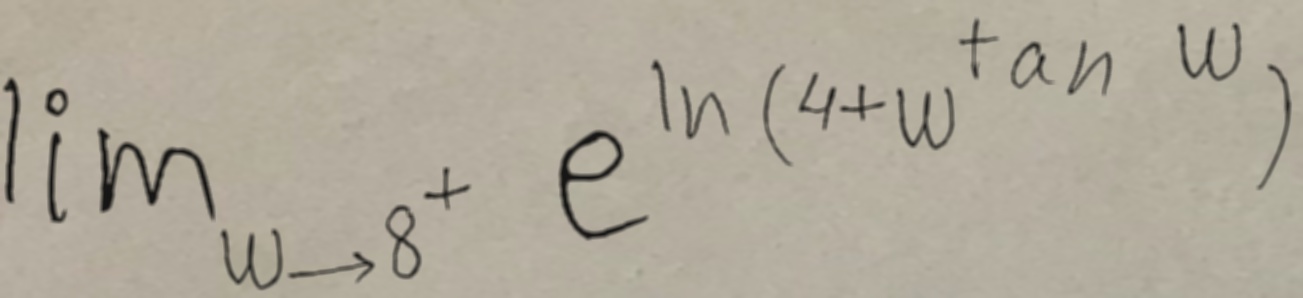 lim_{w→8^+} e^{ln(4+w^{tan w})}